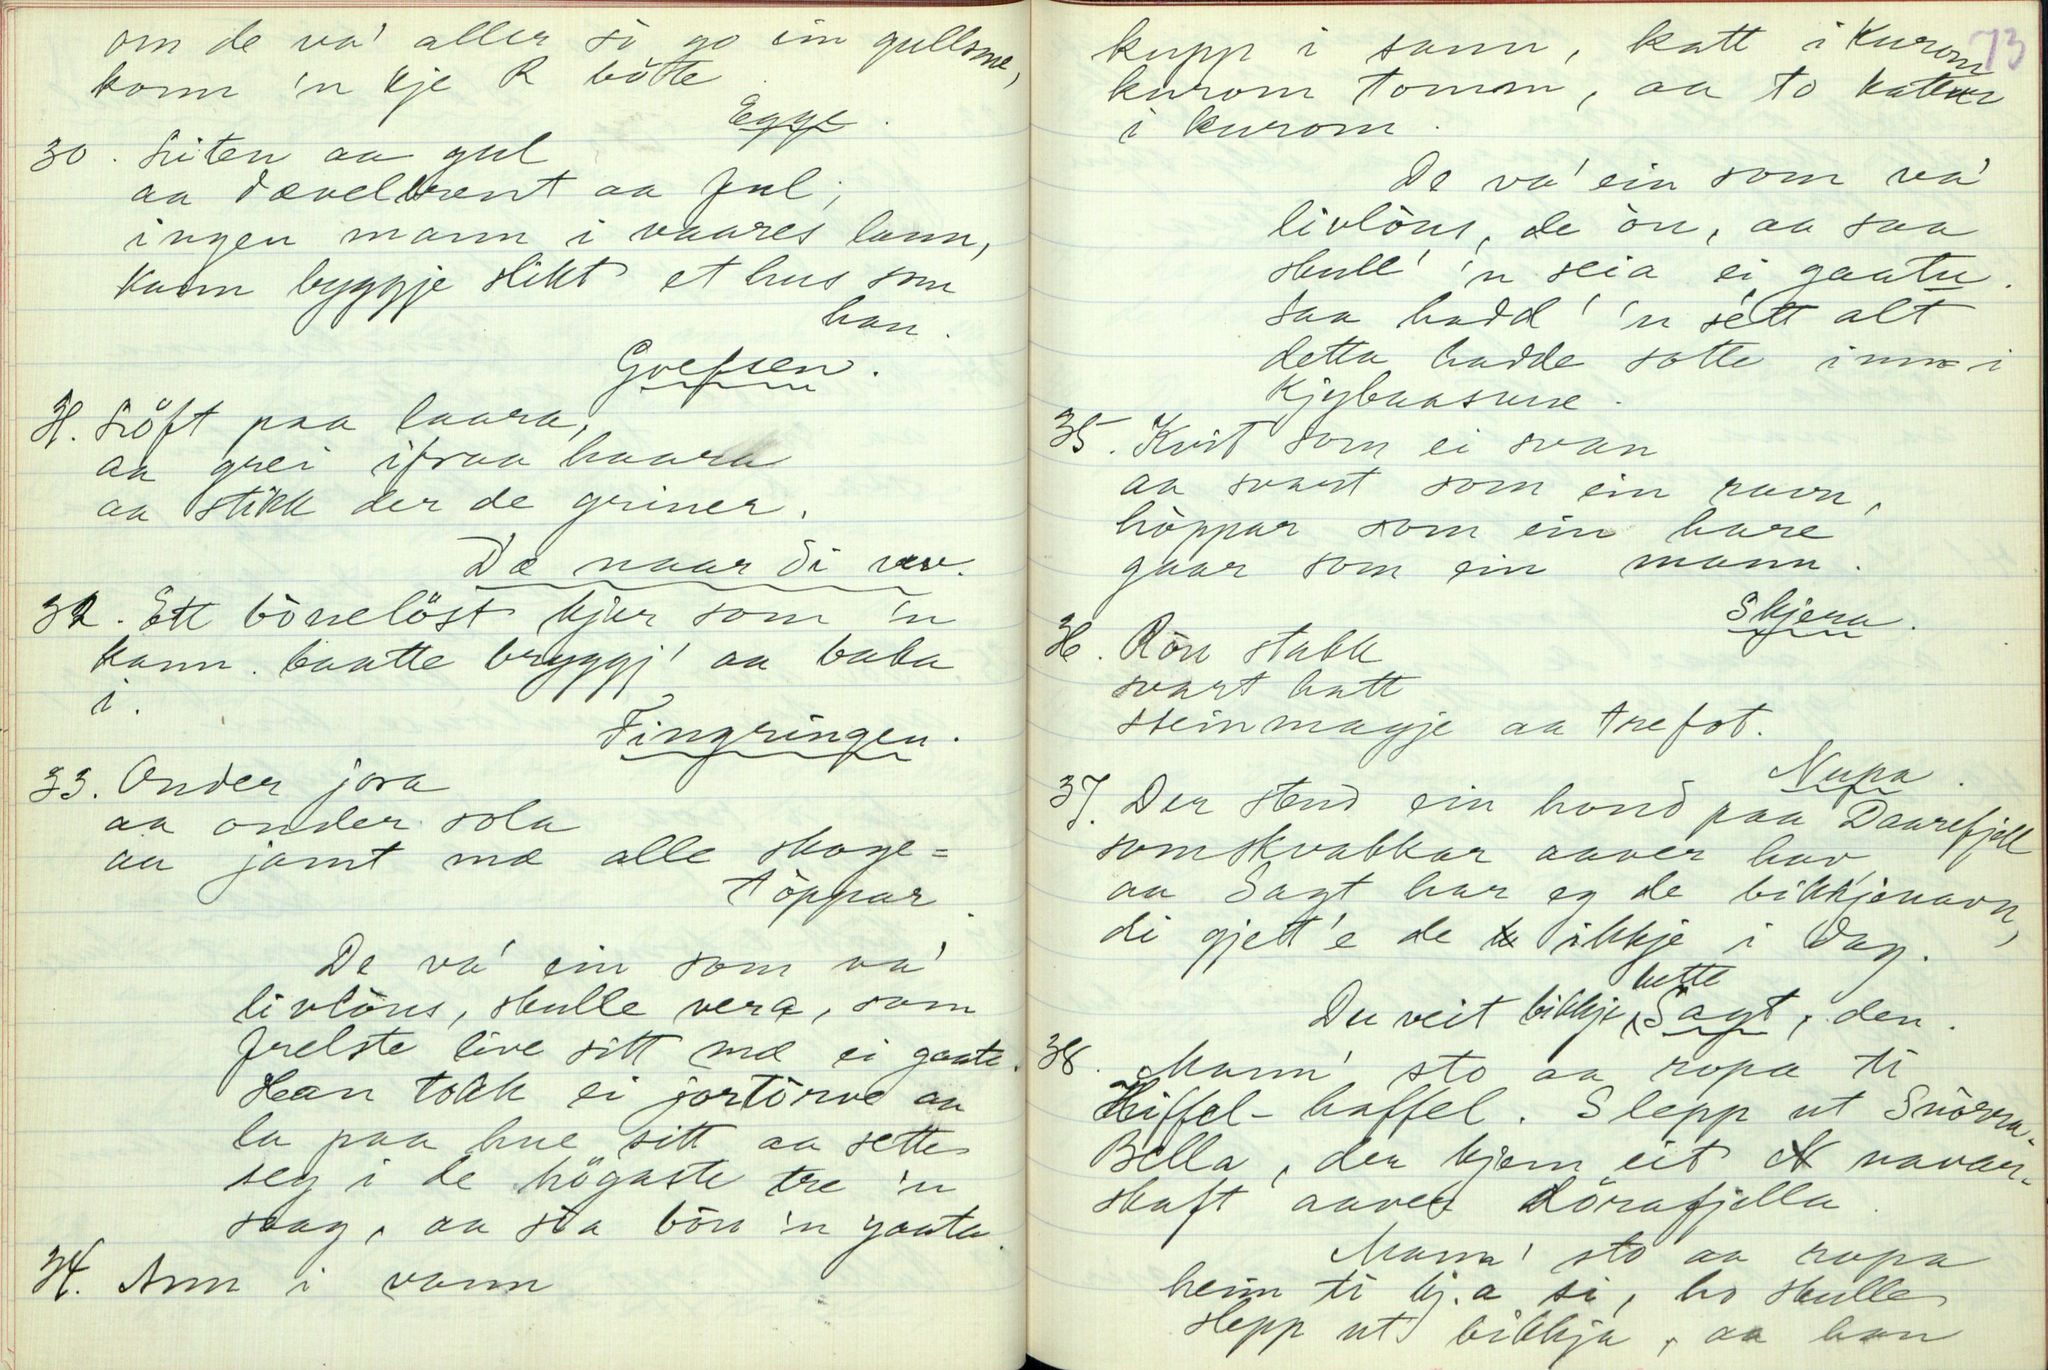 om de va' aller så go ein gullsme,
konn 'n kje R böte
Egge.
30. Liten aa gul
aa dævelbrent aa ful;
ingen mann i vaares lann,
kann byggje slikt et hus som
han.
Gvefsen.
31. Löft paa laara,
aa grei ifraa haara
aa stikk der de griner.
Dæ naar di vev.
32. Ett bönelöst kjer som 'n
kann baatte bryggj' aa baka
i.
Fingringen.
33. Onder jora
aa onder sola
aa jamt mæ alle skoge=
töppar.
De va' ein som va'
livlöns, skulle vera, som
frelste live sitt mæ ei gaate.
Han tokk ei jortörve aa
la paa hue sitt aa sette
seg i de högaste tre 'n
saag, aa sia bön 'n gaata.
34. Ann i vann
73
kupp i sann, katt i kurom
kurom tomm, aa to katter
i kurom.
De va' ein som va'
livlöns, de ön, aa saa
skull' 'n seia ei gaatu.
Saa hadd' 'n sett alt
detta hadde sotte inn i
Kjybaasene.
35. Kvit som ei svan
aa svart som ein ravn,
höppar som ein hare
gaar som ein mann.
Skjera.
36. Rön stakk
svart hatt
steinmagje aa trefot.
Nupa.
37. Der stend ein hond paa Daarefjell
som skvakkar aaver hav
aa Sagt har eg de bikkjenavn,
di gjet'e de ikkje i dag.
Du veit bikkje hette Sagt, den.
38. Mann' sto aa ropa ti
Hiffel-haffel. Slepp ut Snörra-
Bella, der kjem eit navar-
skaft aaver Lörafjella.
Mann' sto aa ropa
heim ti kj.a si, ho skulle
slepp ut bikkja, aa han